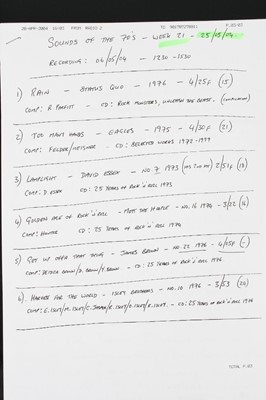 28-APR-2004 16:03 FROM RADIO 2 TO P.03/03
SOUNDS OF THE 70'S - WEEK 21 - 25/05/04
RECORDING: 06/05/04 - 1230-1530
1) RAIN - STATUS QUO - 1976 - 4/25F (15)
COMP: R. PARFITT - CD: ROCK MONSTERS,
2) TOO MANY HANDS - EAGLES - 1975 - 4/30F (21)
COMP: FELDER/MEISNER - CD: SELECTED WORKS 1972-1999
3) LAMPLIGHT - DAVID ESSEX - NO.7 1973 2/51F (18)
COMP: D. ESSEX CD: 25 YEARS OF ROCK'N'ROLL 1973
4) GOLDEN AGE OF ROCK'N'ROLL - MOTT THE HOOPLE - NO.16 1974 - 3/22 (14)
COMP: HUNTER CD: 25 YEARS OF ROCK'N'ROLL 1974
5) GET UP OFFA THAT THING - JAMES BROWN - NO.22 1976 - 4/25F (-)
COMP: DEIDRE BROWN/D. BROWN/Y. BROWN - CD: 25 YEARS OF ROCK'N'ROLL 1976
6) HARVEST FOR THE WORLD - ISLEY BROTHERS - NO.10 1976 - 3/53 (24)
CD: 25 YEARS OF ROCK'N'ROLL 1976
TOTAL P.03